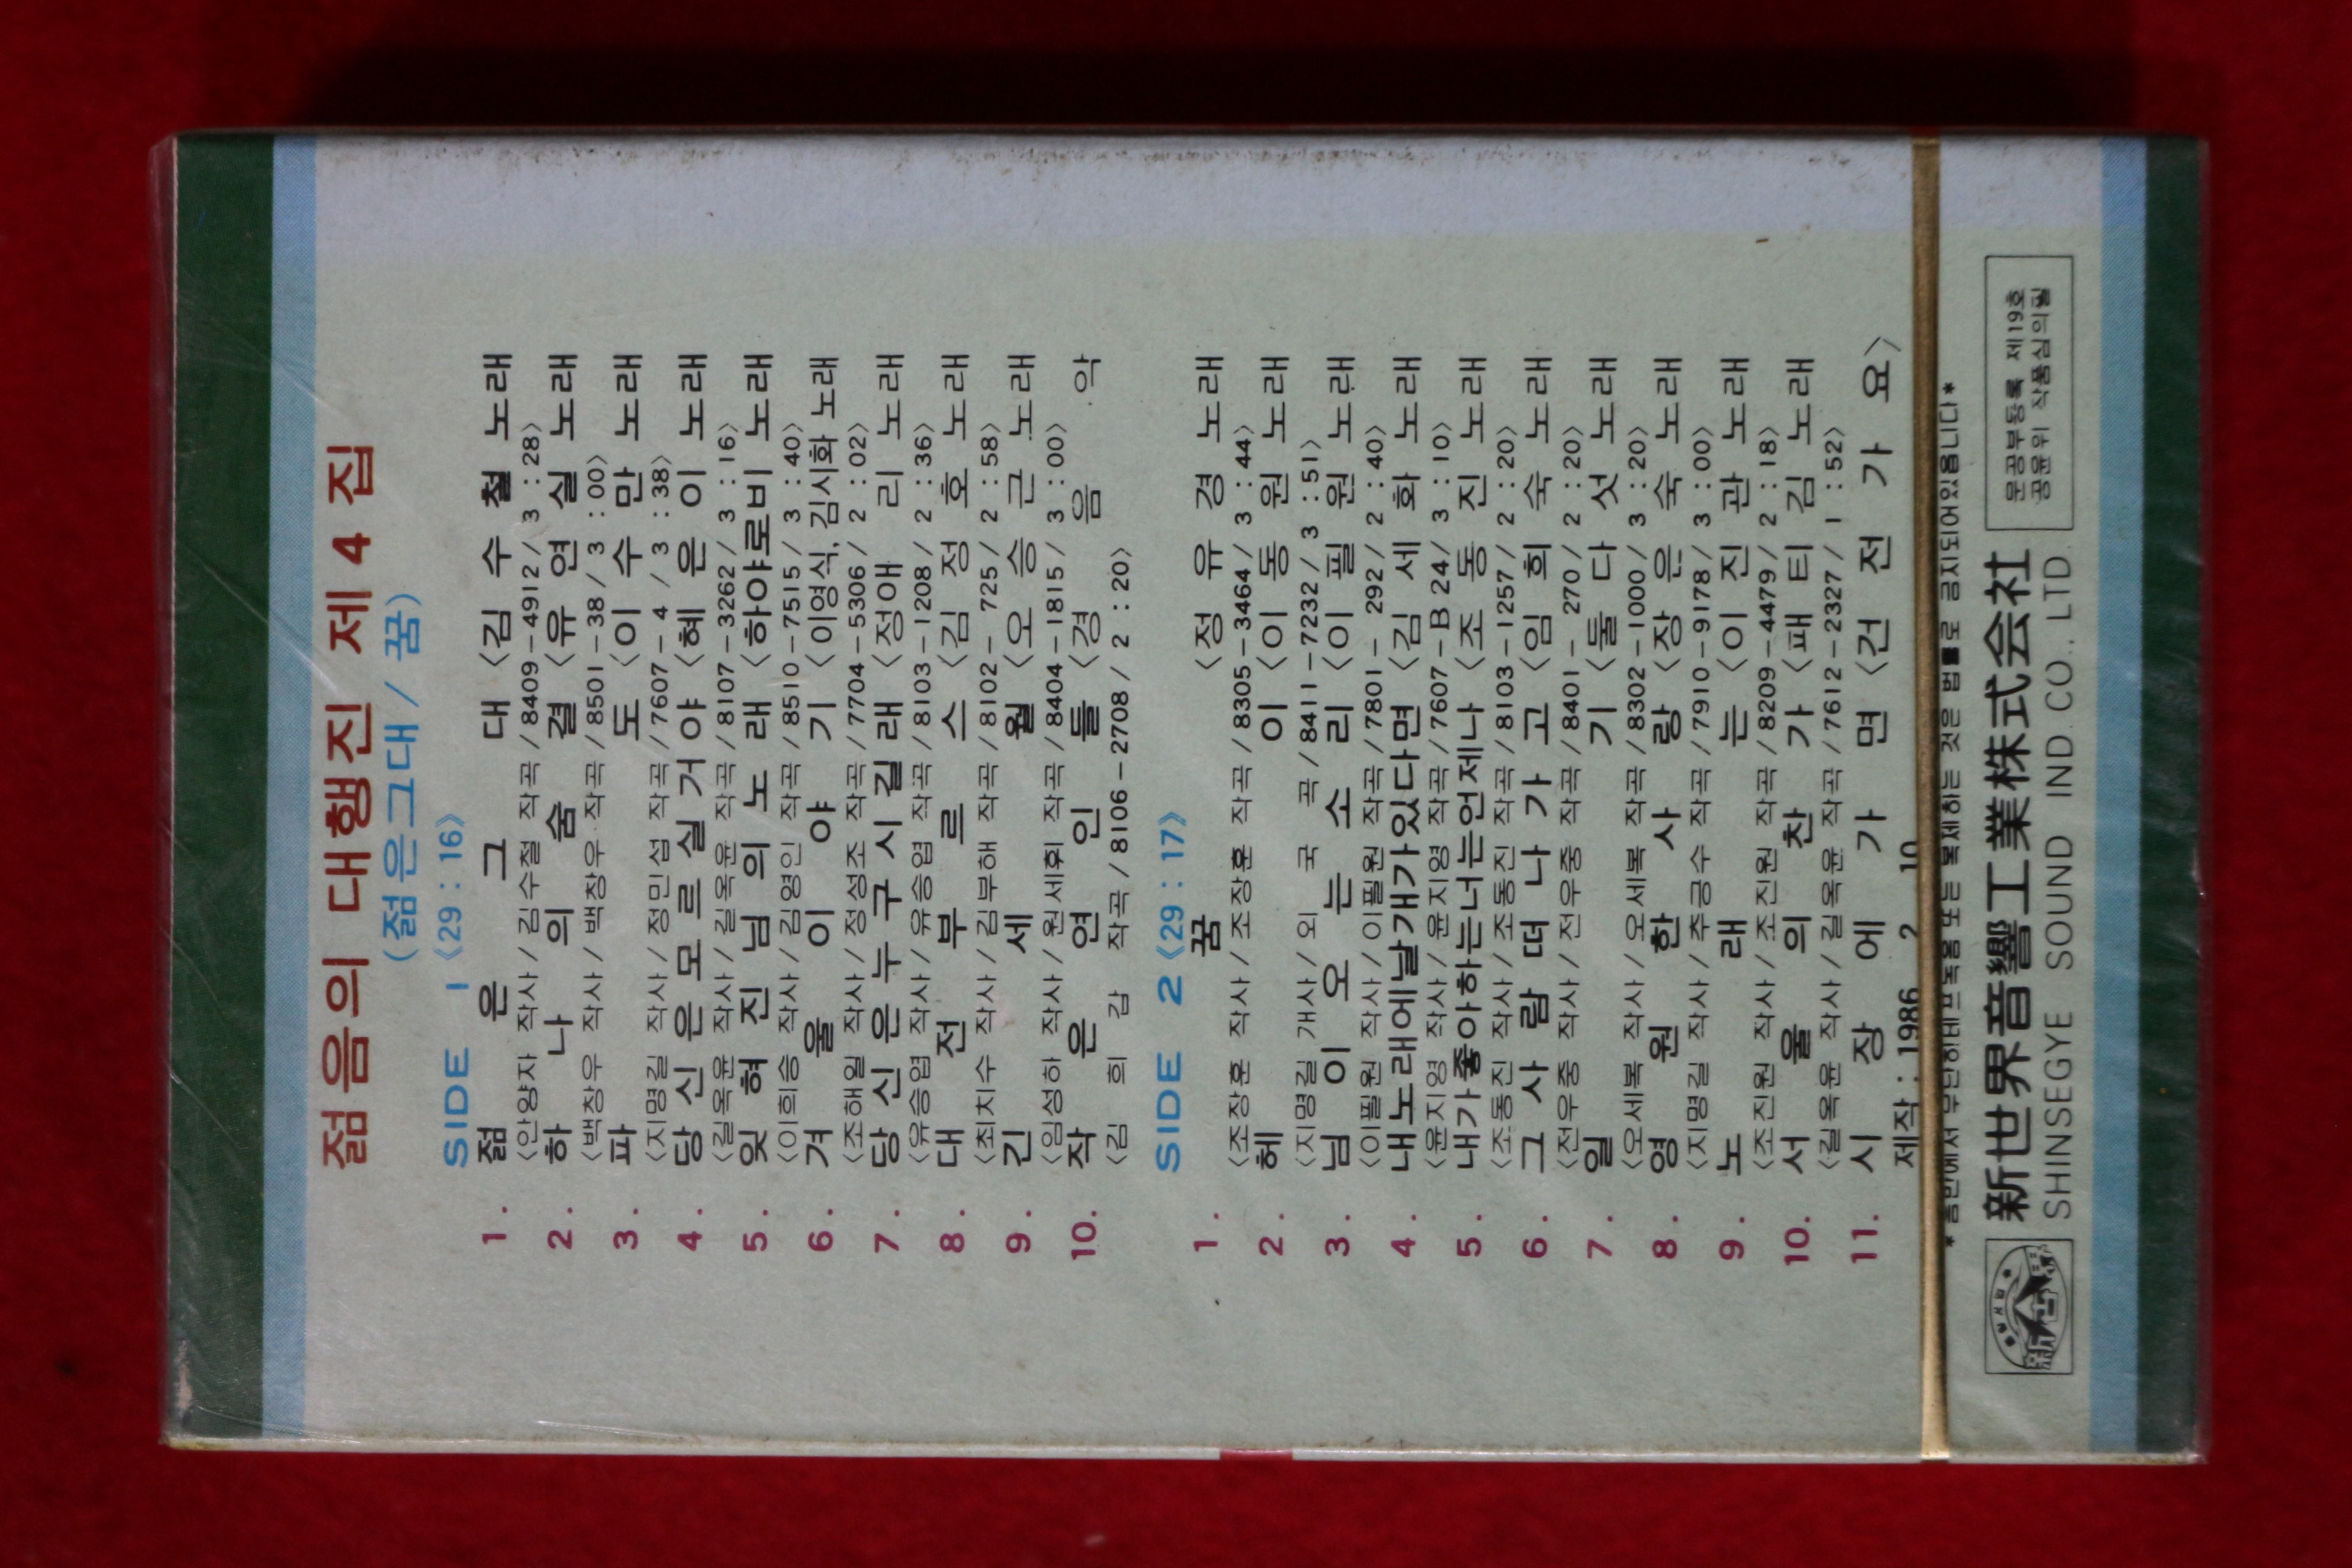 젊음의 대행진 제 4 집
(젊은그대 / 꿈)
SIDE 1 《29 : 16》
1. 젊은 그대 〈김수철 노래
〈안양자 작사 / 김수철 작곡 / 8409-4912 / 3 : 28〉
2. 하나의 숨결 〈유연실 노래
〈백창우 작사 / 백창우 작곡 / 8501-38 / 3 : 00〉
3. 파도 〈이수만 노래
〈지명길 작사 / 정민섭 작곡 / 7607-4 / 3 : 38〉
4. 당신은모르실거야 〈혜은이 노래
〈길옥윤 작사 / 길옥윤 작곡 / 8107-3262 / 3 : 16〉
5. 잊혀진 님의 노래 〈하야로비 노래
〈이희승 작사 / 김영인 작곡 / 8510-7515 / 3 : 40〉
6. 겨울 이야기 〈이영식, 김시화 노래
〈조해일 작사 / 정성조 작곡 / 7704-5306 / 2 : 02〉
7. 당신은누구시길래 〈정애리 노래
〈유승엽 작사 / 유승엽 작곡 / 8103-1208 / 2 : 36〉
8. 대전부르스 〈김정호 노래
〈최치수 작사 / 김부해 작곡 / 8102-725 / 2 : 58〉
9. 긴 세월 〈오승근 노래
〈임성하 작사 / 원세휘 작곡 / 8404-1815 / 3 : 00〉
10. 작은 연인들 〈경음악
〈김희갑 작곡 / 8106-2708 / 2 : 20〉
SIDE 2 《29 : 17》
1. 꿈 〈정유경 노래
〈조장훈 작사 / 조장훈 작곡 / 8305-3464 / 3 : 44〉
2. 헤이 〈이동원 노래
〈지명길 개사 / 외국곡 / 8411-7232 / 3 : 51〉
3. 님이오는소리 〈이필원 노래
〈이필원 작사 / 이필원 작곡 / 7801-292 / 2 : 40〉
4. 내노래에날개가있다면 〈김세화 노래
〈윤지영 작사 / 윤지영 작곡 / 7607-B 24 / 3 : 10〉
5. 내가좋아하는너는언제나 〈조동진 노래
〈조동진 작사 / 조동진 작곡 / 8103-1257 / 2 : 20〉
6. 그사람 떠나가고 〈임희숙 노래
〈전우중 작사 / 전우중 작곡 / 8401-270 / 2 : 20〉
7. 일기 〈둘다섯 노래
〈오세복 작사 / 오세복 작곡 / 8302-1000 / 3 : 20〉
8. 영원한 사랑 〈장은숙 노래
〈지명길 작사 / 추금수 작곡 / 7910-9178 / 3 : 00〉
9. 노래는 〈이진관 노래
〈조진원 작사 / 조진원 작곡 / 8209-4479 / 2 : 18〉
10. 서울의 찬가 〈패티김 노래
〈길옥윤 작사 / 길옥윤 작곡 / 7612-2327 / 1 : 52〉
11. 시장에 가면 〈건전가요〉
제작 : 1986 2 10
*음반에서 무단히테프녹음 또는 복제하는 것은 법률로 금지되어있읍니다*
新世界音響工業株式会社
SHINSEGYE SOUND IND.CO., LTD.
문공부등록 제19호
공윤위 작품심의필